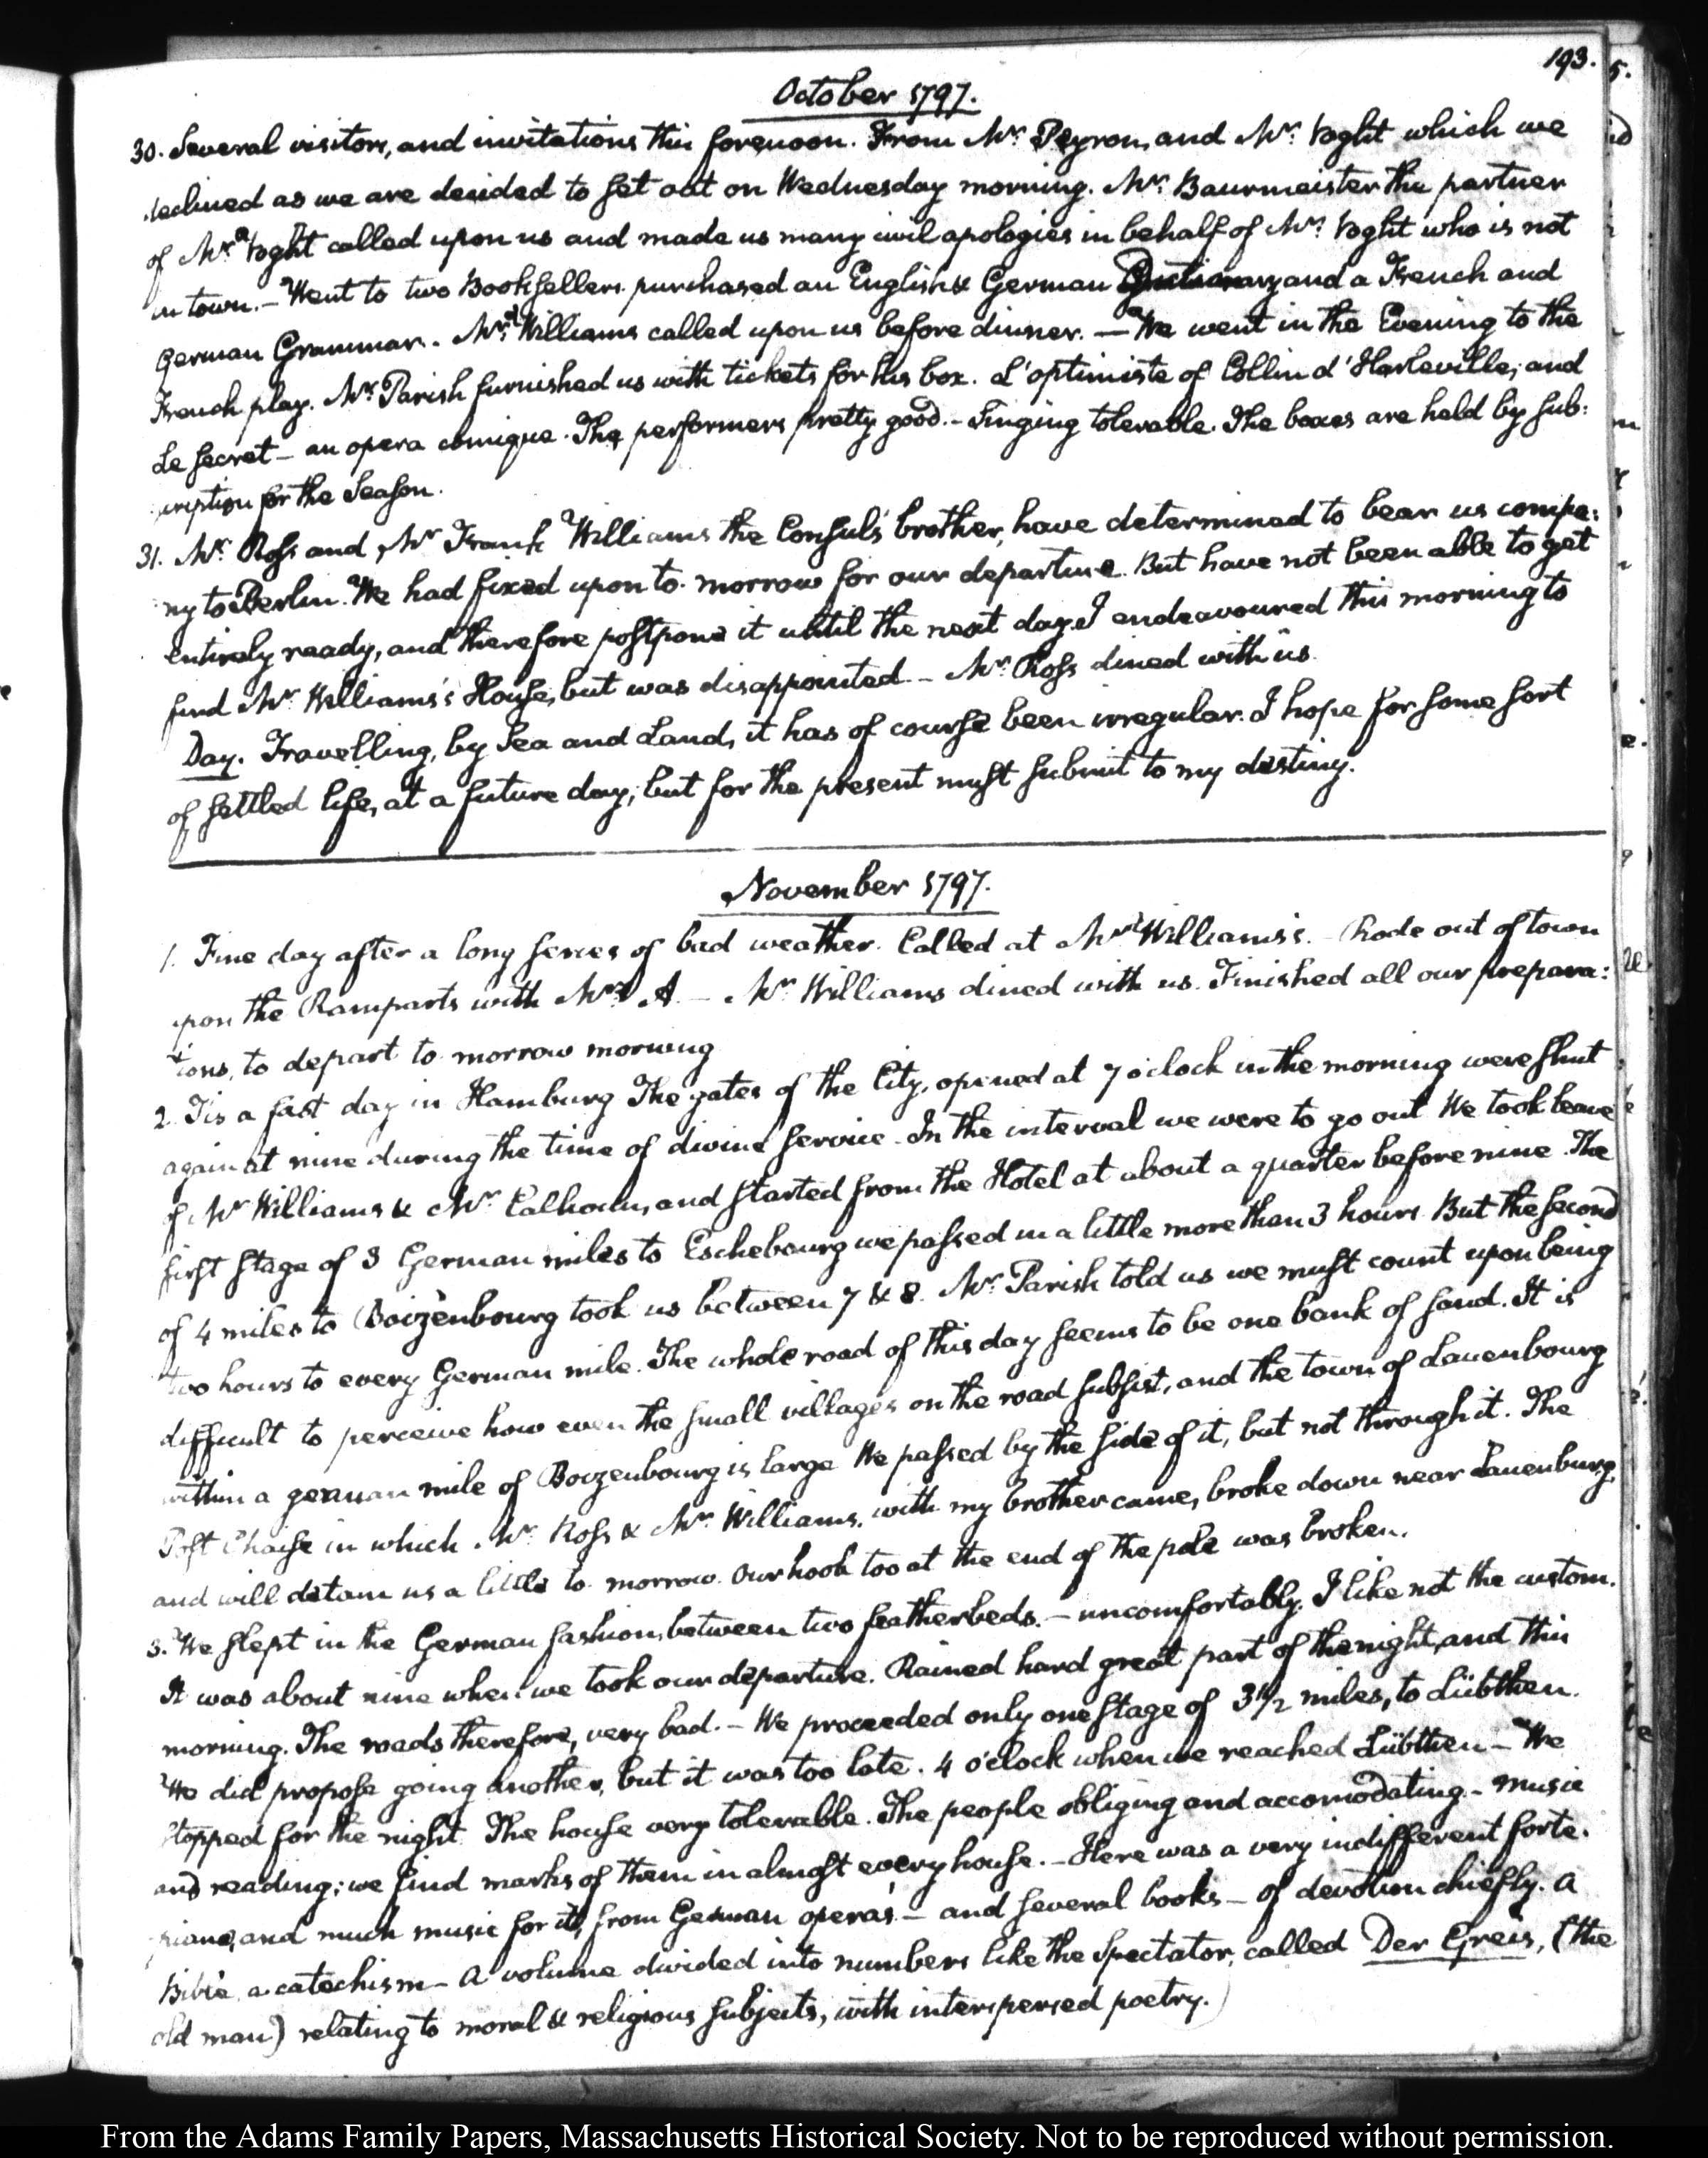 193.
October 1797.
30. Several visitors, and invitations this forenoon. From Mr. Peyron, and Mr. Voght which we
declined as we are decided to set out on Wednesday morning. Mr. Baurmeister the partner
of Mr. Voght called upon us and made us many civil apologies in behalf of Mr. Voght who is not
in town. — Went to two Booksellers purchased an English & German Dictionary and a French and
German Grammar. Williams called upon us before dinner. — We went in the Evening to the
French play. Mr. Parish furnished us with tickets for his box. L'optimiste of Collin d'Harleville, and
Le Secret — an opera comique. The performers pretty good. — Singing tolerable. The boxes are held by sub:
scription for the Season.
31. Mr. Ross and Mr. Frank Williams the Consul's brother, have determined to bear us compa:
ny to Berlin. We had fixed upon to-morrow for our departure. But have not been able to get
entirely ready, and therefore postpone it until the next day. I endeavoured this morning to
find Mr. Williams's House, but was disappointed — Mr. Ross dined with us.
Day. Travelling, by Sea and Land, it has of course been irregular. I hope for some sort
of settled life, at a future day; but for the present must submit to my destiny.
November 1797.
1. Fine day after a long series of bad weather. Called at Williams's. — Rode out of town
upon the Ramparts with Mrs. A. — Mr. Williams dined with us. Finished all our prepara:
tions, to depart to-morrow morning
2. Tis a fast day in Hamburg The gates of the City, opened at 7 o'clock in the morning were shut
again at nine during the time of divine service. In the interval we were to go out We took leave
of Mr. Williams & Mr. Calhoun, and started from the Hotel at about a quarter before nine. The
first stage of 3 German miles to Eschebourg we passed in a little more than 3 hours. But the second
of 4 miles to Boizenbourg took us between 7 & 8. Mr. Parish told us we must count upon being
two hours to every German mile. The whole road of this day seems to be one bank of sand. It is
difficult to perceive how even the small villages on the road subsist, and the town of Lauenbourg
within a german mile of Boizenbourg is large We passed by the side of it, but not through it. The
Post Chaise in which Mr. Ross & Mr. Williams, with my brother came, broke down near Lauenburg,
and will detain us a little to-morrow. Our hook too at the end of the pole was broken.
3. We slept in the German fashion, between two featherbeds. — uncomfortably. I like not the custom.
It was about nine when we took our departure. Rained hard great part of the night, and this
morning. The roads therefore, very bad. — We proceeded only one stage of 3 1/2 miles, to Lübthen.
We did propose going another, but it was too late. 4 o'clock when we reached Lübthen — We
stopped for the night. The house very tolerable. The people obliging and accomodating. — Music
and reading; we find marks of them in almost every house. — Here was a very indifferent forte-
piano, and much music for it, from German opera's — and several books — of devotion chiefly. A
Bible, a catechism — A volume divided into numbers like the Spectator, called Der Greis, (the
old man) relating to moral & religious subjects, with interspersed poetry.
From the Adams Family Papers, Massachusetts Historical Society. Not to be reproduced without permission.